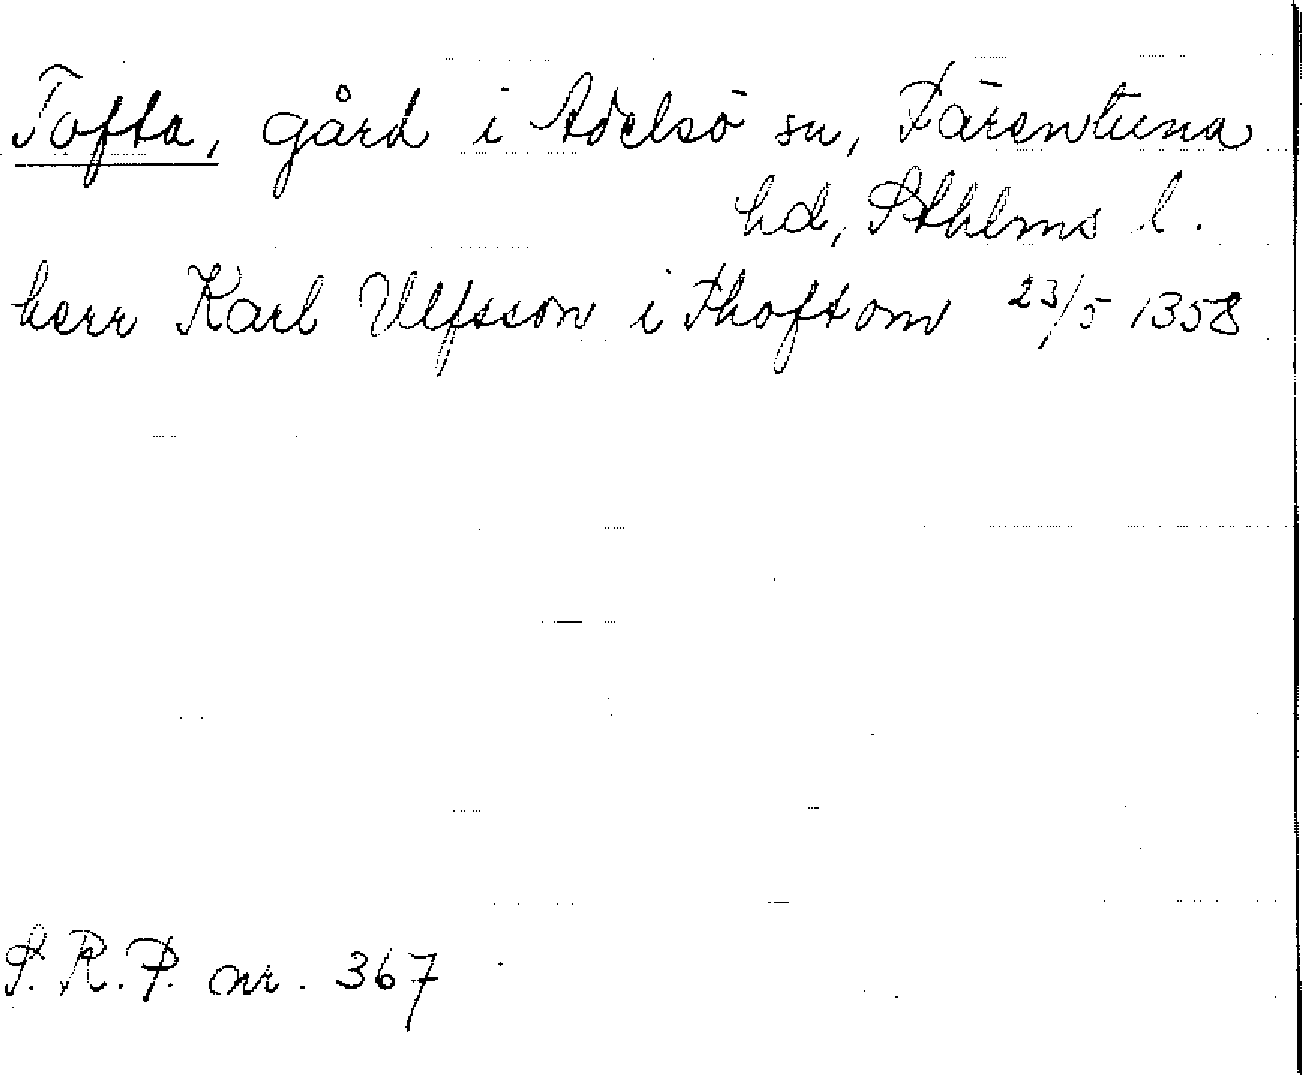 Tofta, gård i Adelsö sn, Färentuna
hd, Sthlms l.
herr Karl Ulfsson i Thoftom 23/5 1358
S.R.P. nr. 367